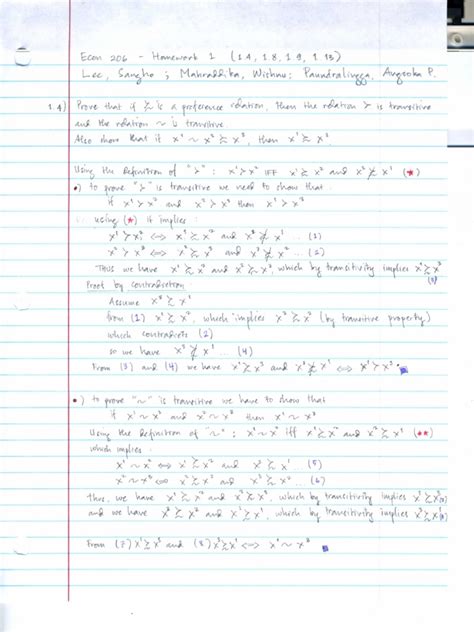 Econ 206 - Homework 1 (1.4, 1.8, 1.9, 1.13)
Lee, Sangho ; Mahraddika, Wishnu; Paundralingga, Anggoka P.
1.4) Prove that if ≿ is a preference relation, then the relation ≻ is transitive
and the relation ~ is transitive.
Also show that if x¹ ~ x² ≿ x³, then x¹ ≿ x³.
Using the definition of "≻" : x¹ ≻ x² IFF x¹ ≿ x² and x² ⋡ x¹ (*)
•) to prove "≻" is transitive we need to show that
if x¹ ≻ x² and x² ≻ x³ then x¹ ≻ x³
using (*) it implies :
x¹ ≻ x² ⟺ x¹ ≿ x² and x² ⋡ x¹ ... (1)
x² ≻ x³ ⟺ x² ≿ x³ and x³ ⋡ x² ... (2)
Thus we have x¹ ≿ x² and x² ≿ x³, which by transitivity implies x¹ ≿ x³
(3)
Proof by contradiction
Assume x³ ≿ x¹
from (1) x¹ ≿ x², which implies x³ ≿ x² (by transitive property)
which contradicts (2)
so we have x³ ⋡ x¹ ... (4)
From (3) and (4) we have x¹ ≿ x³ and x³ ⋡ x¹ ⟺ x¹ ≻ x³
•) to prove "~" is transitive we have to show that
if x¹ ~ x² and x² ~ x³ then x¹ ~ x³
Using the definition of "~" : x¹ ~ x² iff x¹ ≿ x² and x² ≿ x¹ (**)
which implies :
x¹ ~ x² ⟺ x¹ ≿ x² and x² ≿ x¹ ... (5)
x² ~ x³ ⟺ x² ≿ x³ and x³ ≿ x² ... (6)
Thus, we have x¹ ≿ x² and x² ≿ x³, which by transitivity implies x¹ ≿ x³ (7)
and we have x³ ≿ x² and x² ≿ x¹, which by transitivity implies x³ ≿ x¹ (8)
From (7) x¹ ≿ x³ and (8) x³ ≿ x¹ ⟺ x¹ ~ x³